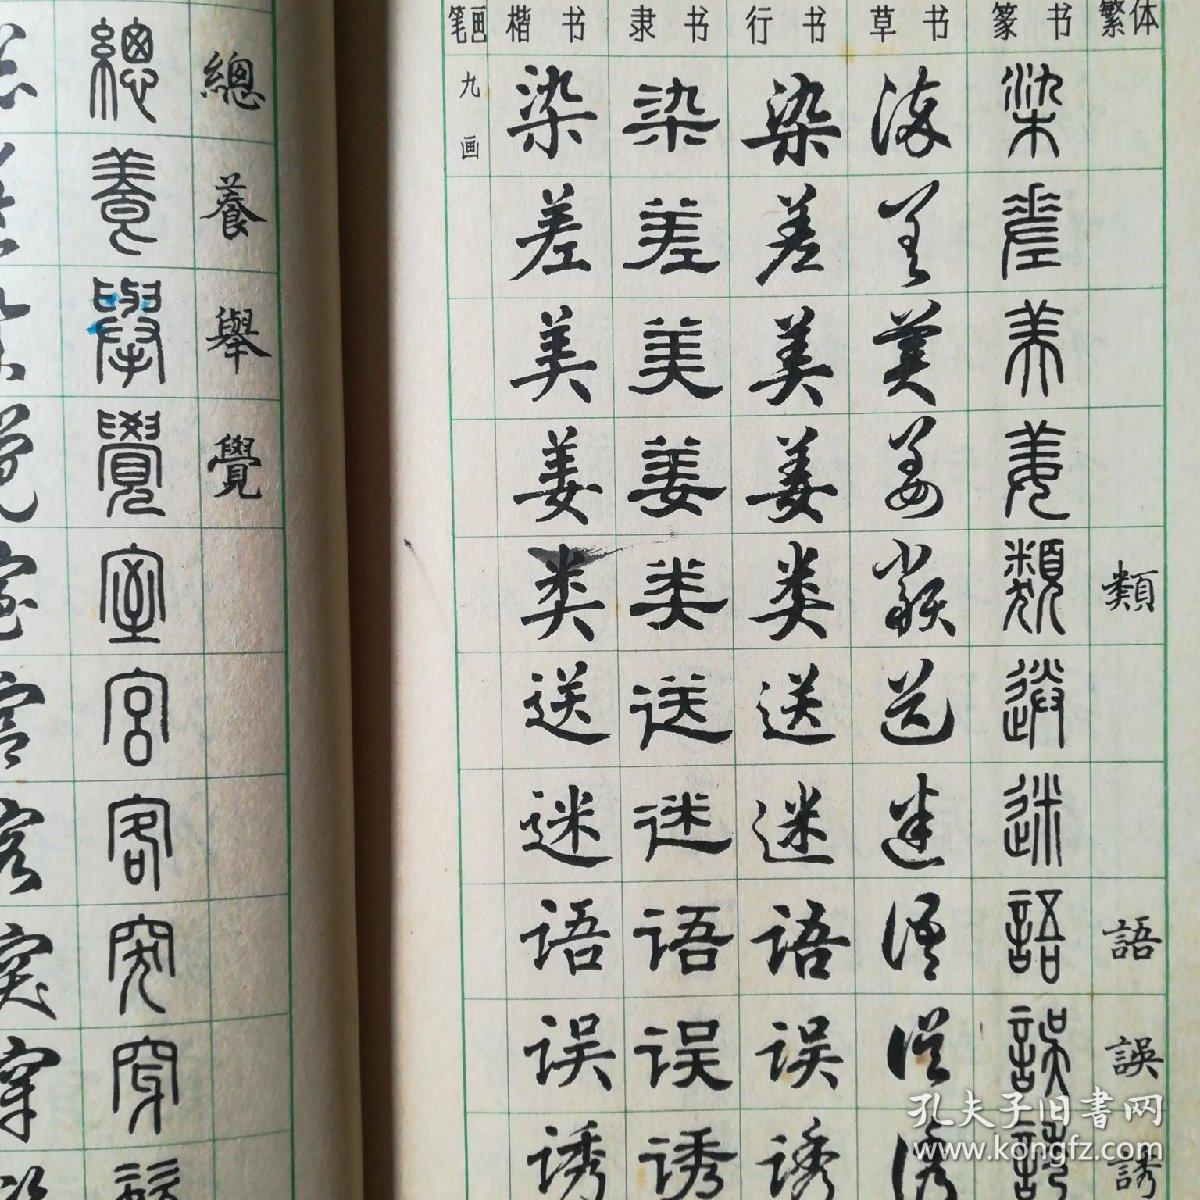 總 總
養 養
舉 舉
覺 覺
室
宮
客
突
穿
笔画 楷书 隶书 行书 草书 篆书 繁体
九画 染 染 染 染 染
差 差 差 差 差
美 美 美 美 美
姜 姜 姜 姜 姜
类 类 类 类 類 類
送 送 送 送 送
迷 迷 迷 迷 迷
语 语 语 语 語 語
误 误 误 误 誤 誤
诱 诱 诱 诱 誘 誘
孔夫子旧書网
www.kongfz.com